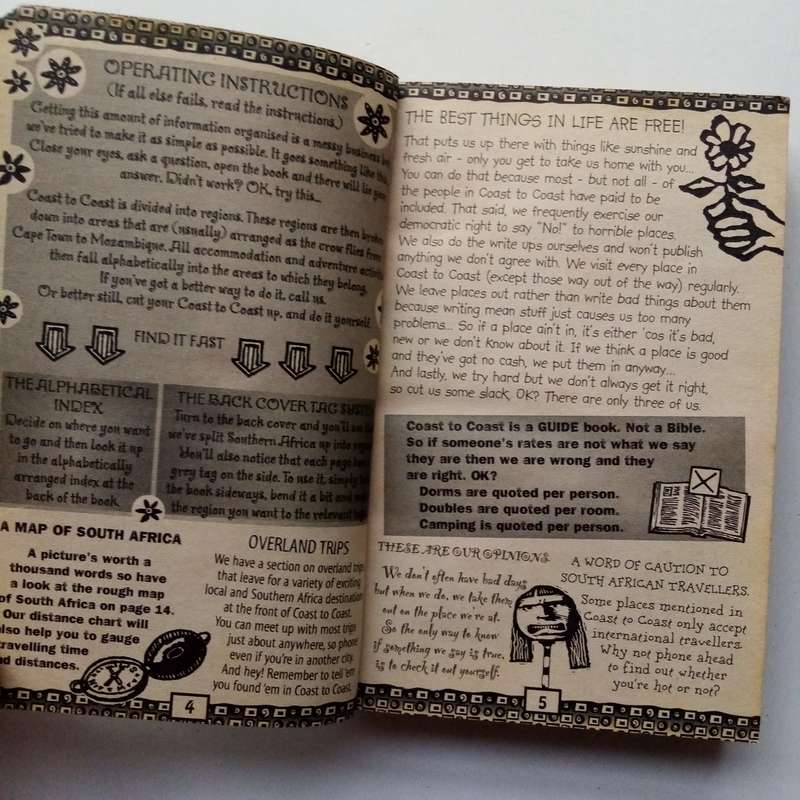 OPERATING INSTRUCTIONS
(If all else fails, read the instructions.)
Getting this amount of information organised is a messy business but
we've tried to make it as simple as possible. It goes something like this:
Close your eyes, ask a question, open the book and there will lie your
answer. Didn't work? OK, try this...
Coast to Coast is divided into regions. These regions are then broken
down into areas that are (usually) arranged as the crow flies from
Cape Town to Mozambique. All accommodation and adventure
then fall alphabetically into the areas to which they belong.
If you've got a better way to do it, call us.
Or better still, cut your Coast to Coast up, and do it yourself.
FIND IT FAST
THE ALPHABETICAL
INDEX
Decide on where you want
to go and then look it up
in the alphabetically
arranged index at the
back of the book.
THE BACK COVER TAG
Turn to the back cover and you'll see
we've split Southern Africa up into
You'll also notice that each page
grey tag on the side. To use it, simply
the book sideways, bend it a bit and
the region you want to the relevant
A MAP OF SOUTH AFRICA
A picture's worth a
thousand words so have
a look at the rough map
of South Africa on page 14.
Our distance chart will
also help you to gauge
travelling time
distances.
OVERLAND TRIPS
We have a section on overland trips
that leave for a variety of exciting
local and Southern Africa destinations
at the front of Coast to Coast.
You can meet up with most trips
just about anywhere, so phone
even if you're in another city.
And hey! Remember to tell 'em
you found 'em in Coast to Coast.
4
THE BEST THINGS IN LIFE ARE FREE!
That puts us up there with things like sunshine and
fresh air - only you get to take us home with you...
You can do that because most - but not all - of
the people in Coast to Coast have paid to be
included. That said, we frequently exercise our
democratic right to say "No!" to horrible places.
We also do the write ups ourselves and won't publish
anything we don't agree with. We visit every place in
Coast to Coast (except those way out of the way) regularly.
We leave places out rather than write bad things about them
because writing mean stuff just causes us too many
problems... So if a place ain't in, it's either 'cos it's bad,
new or we don't know about it. If we think a place is good
and they've got no cash, we put them in anyway...
And lastly, we try hard but we don't always get it right,
so cut us some slack, OK? There are only three of us.
Coast to Coast is a GUIDE book. Not a Bible.
So if someone's rates are not what we say
they are then we are wrong and they
are right. OK?
Dorms are quoted per person.
Doubles are quoted per room.
Camping is quoted per person.
THESE ARE OUR OPINIONS.
We don't often have bad days
but when we do, we take them
out on the place we're at.
So the only way to know
if something we say is true,
is to check it out yourself.
A WORD OF CAUTION TO
SOUTH AFRICAN TRAVELLERS.
Some places mentioned in
Coast to Coast only accept
international travellers.
Why not phone ahead
to find out whether
you're hot or not?
5